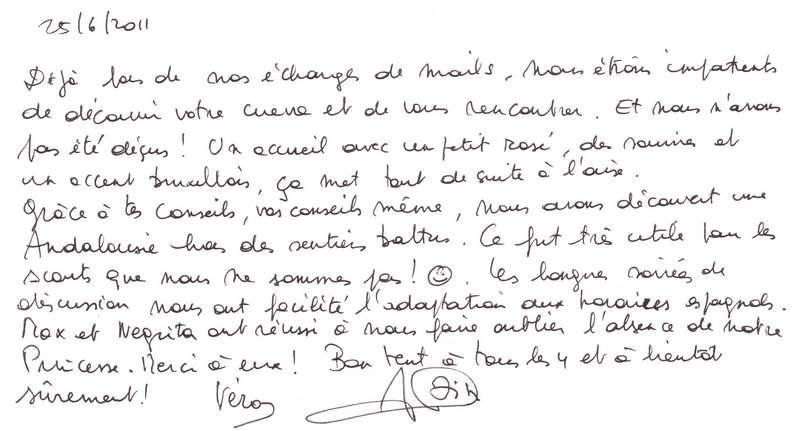 25/6/2011
Déjà lors de nos échanges de mails, nous étions impatients
de découvrir votre cueva et de vous rencontrer. Et nous n'avons
pas été déçus ! Un accueil avec un petit rosé, des sourires et
un accent bruxellois, ça met tout de suite à l'aise.
Grâce à tes conseils, vos conseils même, nous avons découvert une
Andalousie hors des sentiers battus. Ce fut très utile pour les
scouts que nous ne sommes pas ! ☺. Les longues soirées de
discussion nous ont facilité l'adaptation aux horaires espagnols.
Max et Negrita ont réussi à nous faire oublier l'absence de notre
Princesse. Merci à eux ! Bon vent à tous les 4 et à bientôt
sûrement !
Véro